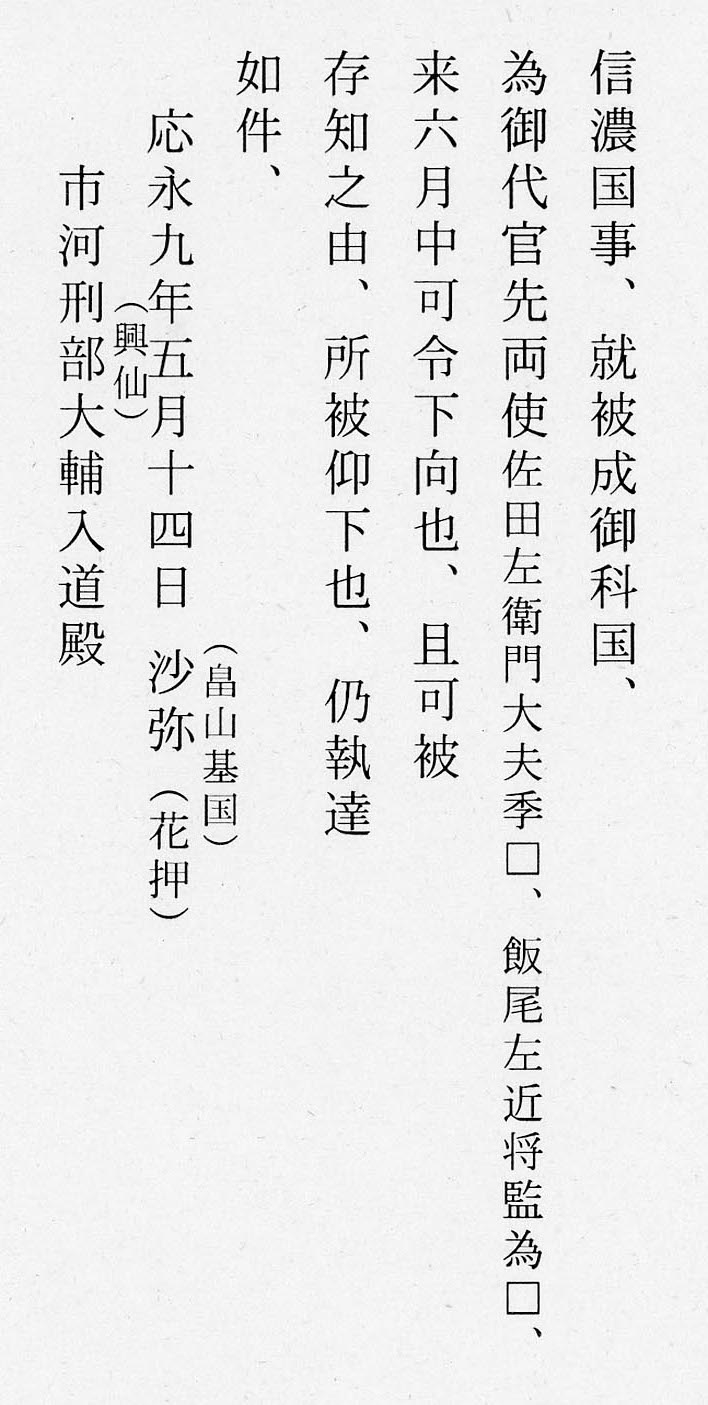 信濃国事、就被成御科国、
為御代官先両使佐田左衛門大夫季□、飯尾左近将監為□、
来六月中可令下向也、且可被
存知之由、所被仰下也、仍執達
如件、
（畠山基国）
応永九年五月十四日　沙弥（花押）
（興仙）
市河刑部大輔入道殿